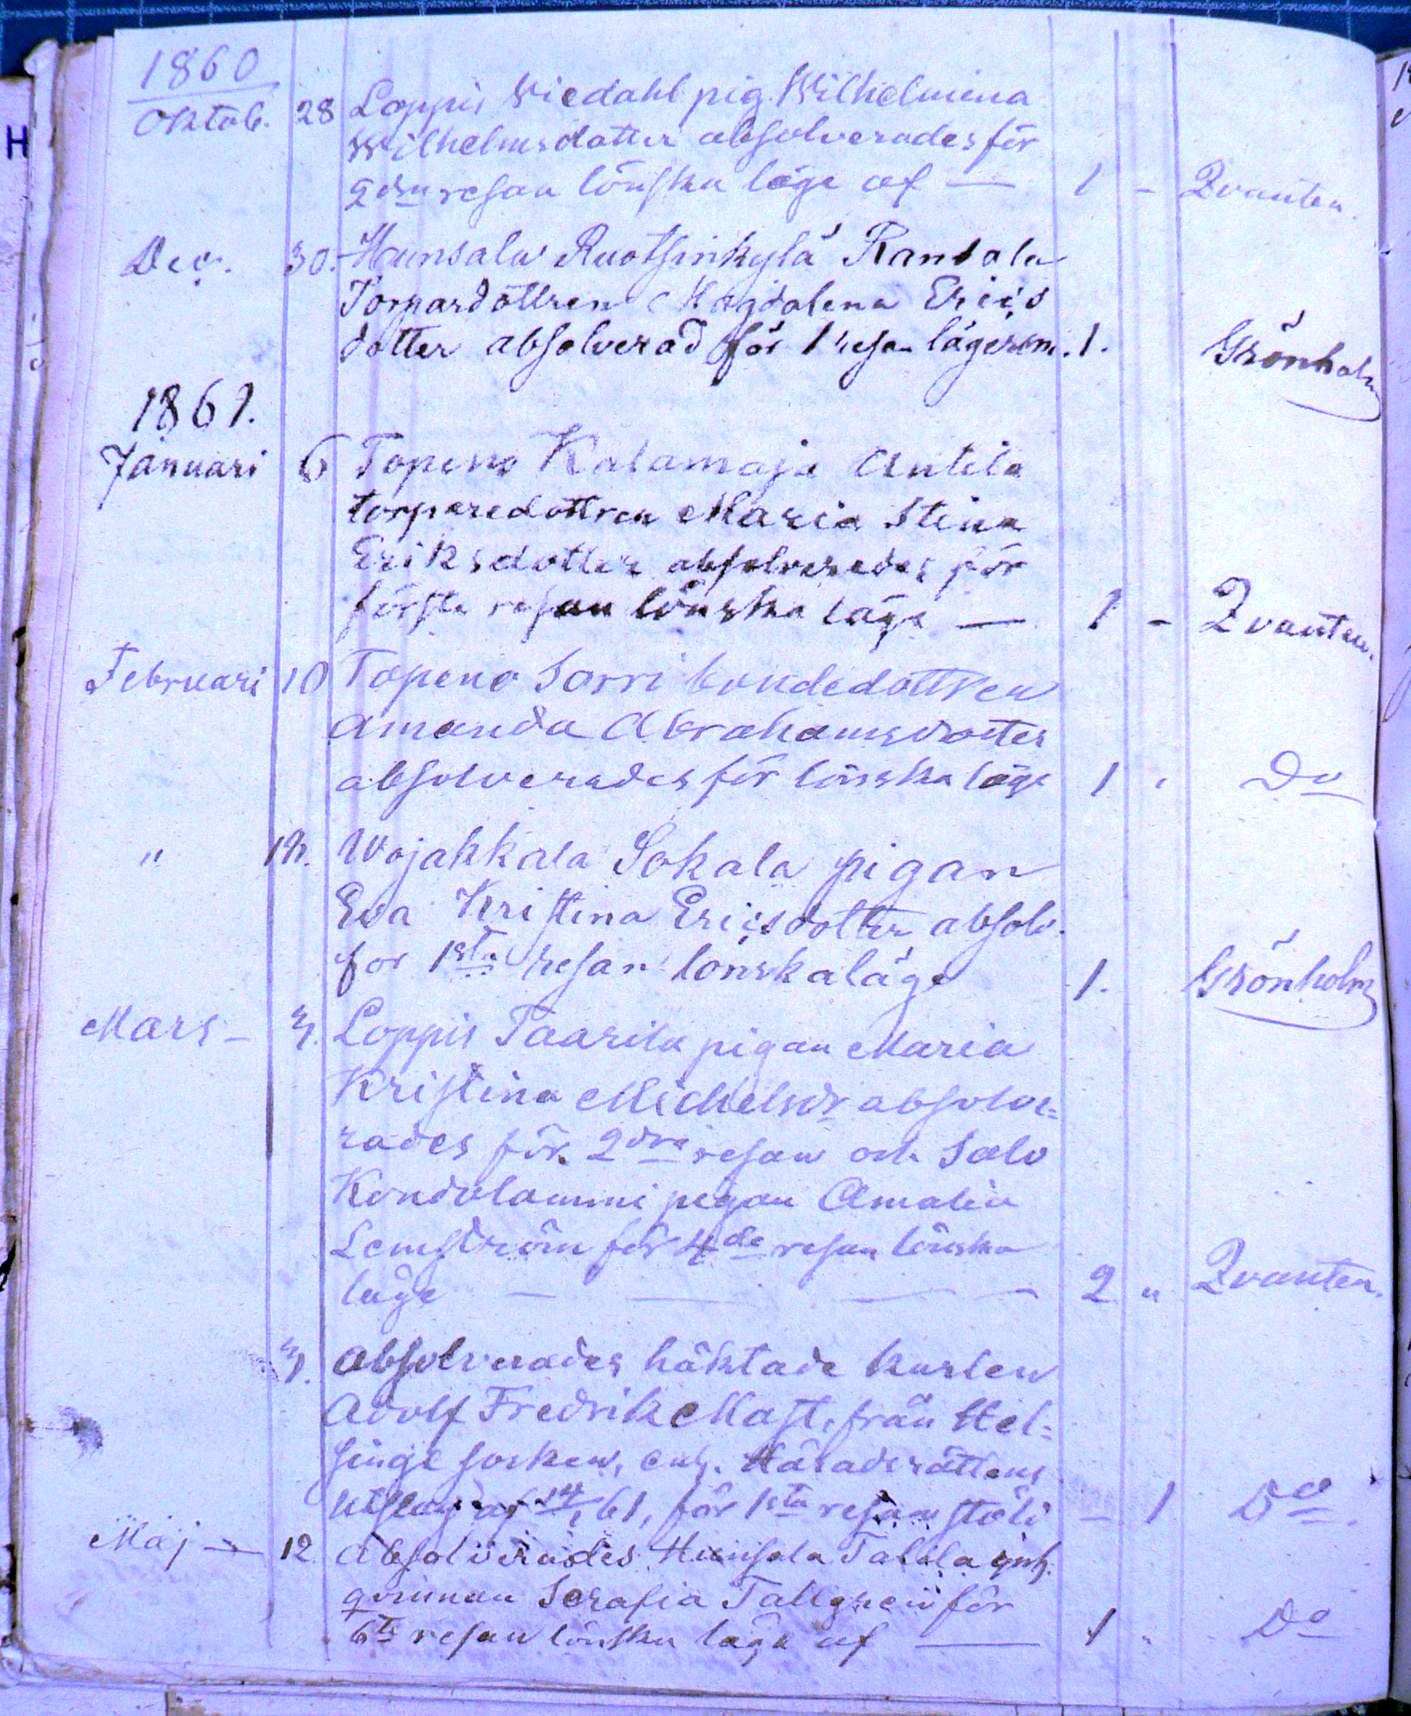 1860
Oktob. 28 Loppis Wiedahl pig. Wilhelmina
Wilhelmsdotter absolverades för
2dra resan lönska läge af — 1 - Qvanten.
Dec. 30. Hunsala Ruotsinkylä Rantala
Torpardottren Magdalena Erics
dotter absolverad för 1 resan lägersm. 1. Grönholm
1861.
Januari 6 Topeno Kalamaja Antila
torparedottren Maria Stina
Eriksdotter absolverades för
första resan lönska läge — 1 - Qvanten.
Februari 10 Topeno Sorri bondedottren
Amanda Abrahamsdotter
absolverades för lönska läge 1 " Do
" Wojakkala Sokala pigan
Eva Kristina Ericsdotter absolv.
for 1sta resan lönskaläge 1. Grönholm
Mars - 3. Loppis Taarila pigan Maria
Kristina Michelsdr absolve-
rades för 2dra resan och Salo
Kondolammi pigan Amalia
Lemström för 4de resan lönska
läge — — — — 2 " Qvanten.
3. Absolverades häktade karlen
Adolf Fredrik Mast, från Hel-
singe socken, enl. Häradsrättens
utslag af 61, för 1sta resan stöld — 1 Do
Maj — 12 Absolverades Hunsala Talala inh.
qvinnan Serafia Tallgren för
6te resan lönska läge af — 1 " Do